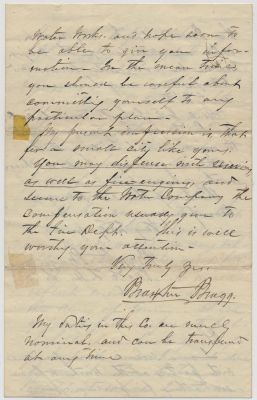 Water Works. and hope soon to
be able to give you infor-
mation. In the mean time
you should be careful about
committing yourself to any
particular plan.
My present impression is that
for a small city like yours.
You may dispense with
as well as fire engines, and
secure to the Water Company the
compensation usually given to
the Fire Dept. This is well
worthy your attention.
Very Truly Yrs.
Braxton Bragg.
My duties in this Co. are merely
nominal, and can be transferred
at any time